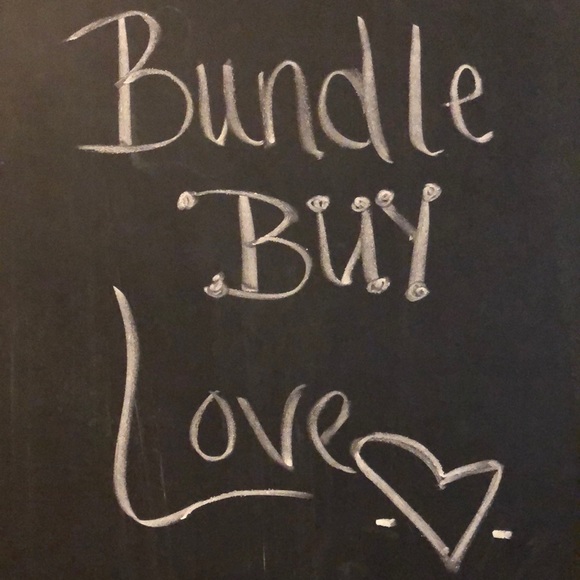 Bundle
BUY
Love